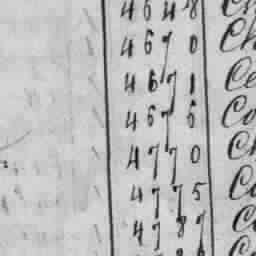 4648 Ch
4670 Ch
4671 Ce
4676 Co
4770 Ch
4775 Co
4787 Co